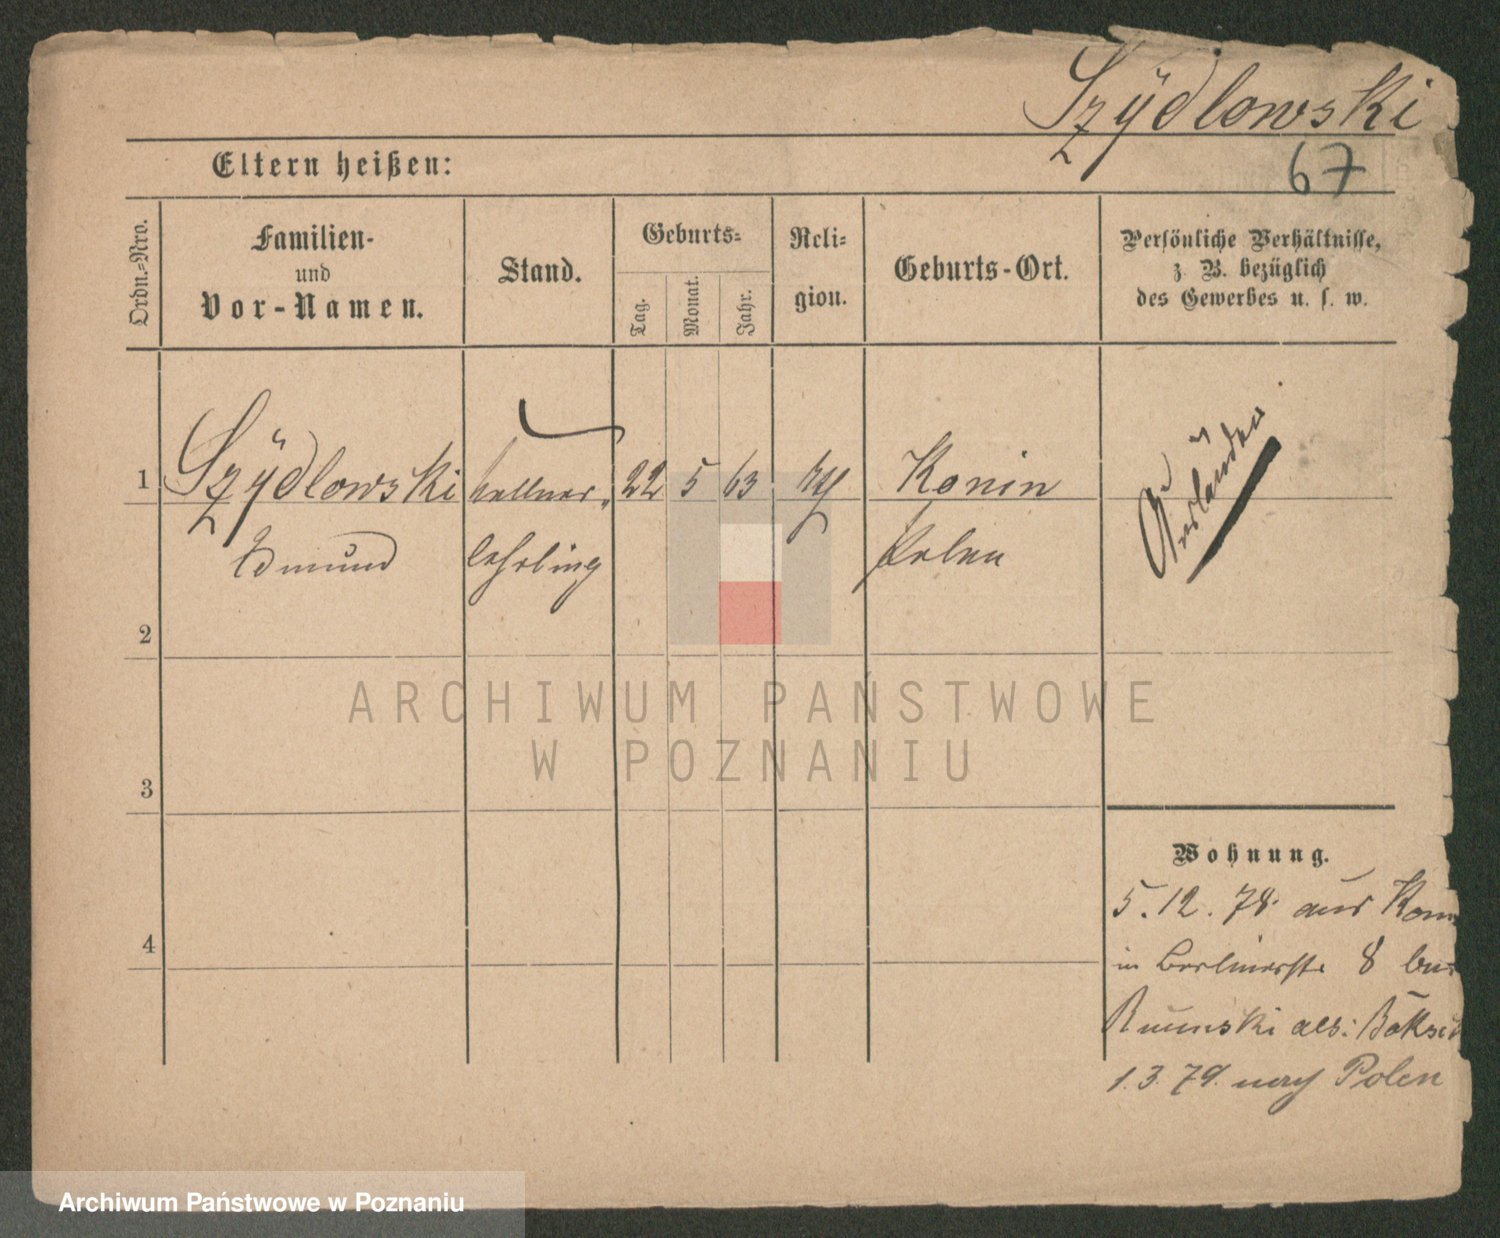 Szÿdlowski
67
Eltern heißen:
Ordn.-Nro.
Familien-
und
Vor-Namen.
Stand.
Geburts-
Tag.
Monat.
Jahr.
Reli-
gion.
Geburts-Ort.
Persönliche Verhältnisse,
z. B. bezüglich
des Gewerbes u. s. w.
1 Szÿdlowski kellner- 22 5 63 Konin
Edmund lehrling Polen
2
3
4
Wohnung.
5.12.78. aus
in Berlinerstr 8
als:
1.3.79. nach Polen
ARCHIWUM PAŃSTWOWE
W POZNANIU
Archiwum Państwowe w Poznaniu